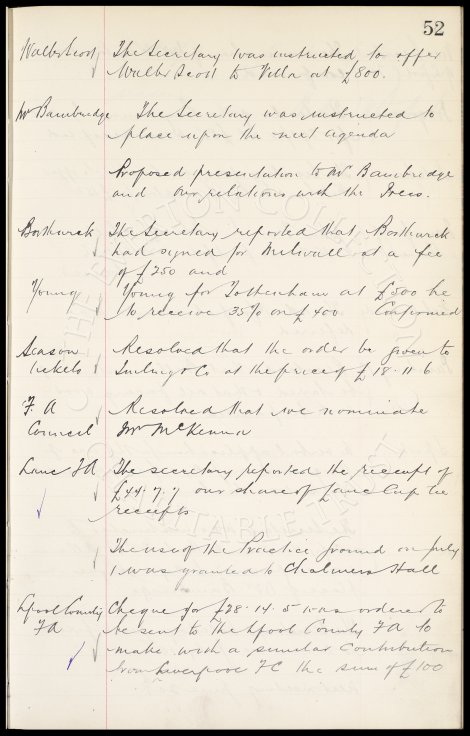 52
Walter Scott The Secretary was instructed to offer
Walter Scott to Villa at £800.
Mr Bambridge The Secretary was instructed to
place upon the next agenda
Proposed presentation to Mr Bambridge
and our relations with the Press.
Borthwick The Secretary reported that Borthwick
had signed for Millwall at a fee
of £250 and
Young Young for Tottenham at £500 he
to receive 35% on £400 Confirmed
Season Resolved that the order be given to
Tickets & Co at the price of £18-11-6
F. A Resolved that we nominate
Council Mr McKenna
Lanc FA The secretary reported the receipt of
£44-7-7 our share of Lanc Cup tie
receipts
The use of the Practice ground on July
1 was granted to Chalmers Hall
Lpool County Cheque for £28-14-5 was ordered to
FA be sent to the Lpool County FA to
make with a similar contribution
from Liverpool FC the sum of £100